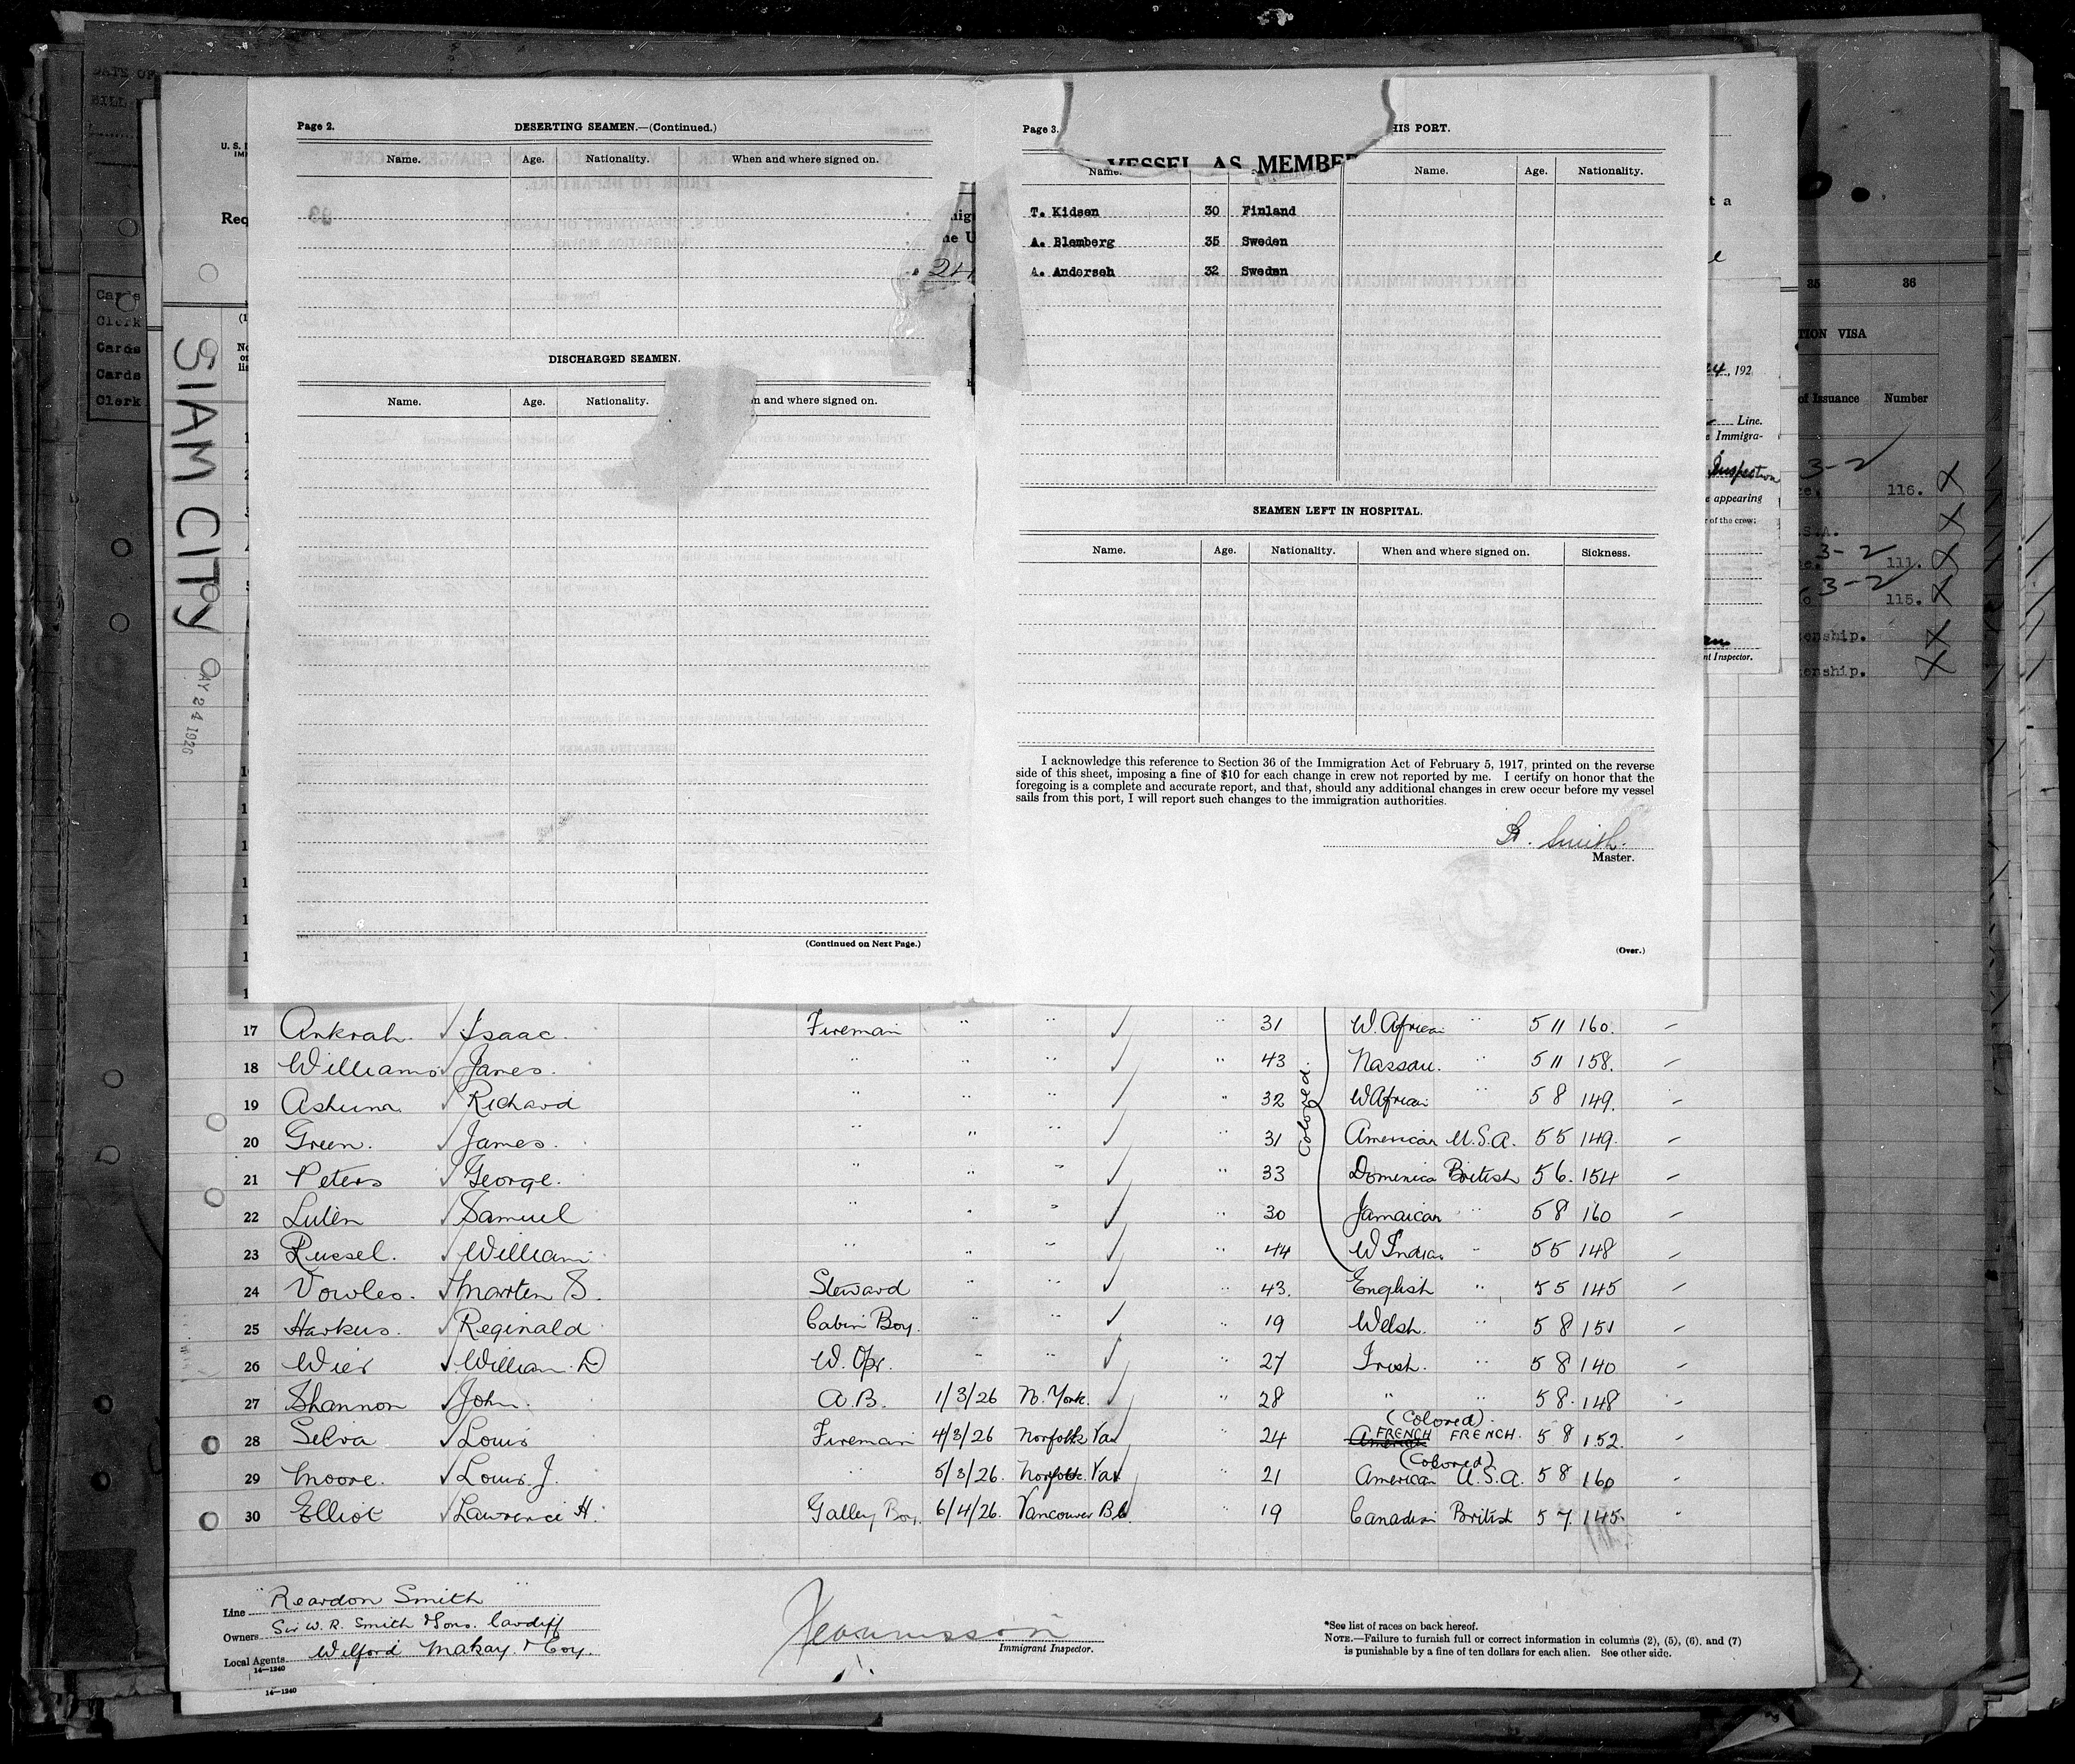 Page 2.
DESERTING SEAMEN.—(Continued.)
Name. Age. Nationality. When and where signed on.
DISCHARGED SEAMEN.
Name. Age. Nationality. and where signed on.
(Continued on Next Page.)
Page 3. HIS PORT.
VESSEL AS MEMBE
Name. Name. Age. Nationality.
T. Kidsen 30 Finland
A. Blemberg 35 Sweden
A. Anderseh 32 Sweden
SEAMEN LEFT IN HOSPITAL.
Name. Age. Nationality. When and where signed on. Sickness.
I acknowledge this reference to Section 36 of the Immigration Act of February 5, 1917, printed on the reverse
side of this sheet, imposing a fine of $10 for each change in crew not reported by me. I certify on honor that the
foregoing is a complete and accurate report, and that, should any additional changes in crew occur before my vessel
sails from this port, I will report such changes to the immigration authorities.
Smith.
Master.
(Over.)
U. S.
Req
SIAM CITY
AY 24 1926
Cards
Clerk
Cards
Cards
Clerk
35 36
TION VISA
of Issuance Number
24, 192
Line.
Immigra-
Inspection
appearing
of the crew:
nt Inspector.
3-2
116. X
S.A. X
3-2
111. X
3-2
115. X
enship. X
enship. X
17 Ankrah. Isaac. Fireman " " " 31 W. African " 5 11 160. –
18 Williams James. " " " " 43 Nassau. " 5 11 158. –
19 Ashuma Richard " " " " 32 W African " 5 8 149. –
20 Green. James. " " " " 31 American U.S.A. 5 5 149. –
21 Peters George. " " " " 33 Domenica British 5 6. 154 –
22 Luten Samuel " " " " 30 Jamaican " 5 8 160 –
23 Russel. William " " " " 44 W Indian " 5 5 148 –
Colored.
24 Vowles. Marten S. Steward " " " 43. English " 5 5 145 –
25 Harkus. Reginald Cabin Boy. " " " 19 Welsh. " 5 8 151 –
26 Wier William. D W. Opr. " " " 27 Irish. " 5 8 140 –
27 Shannon John. A.B. 1/3/26 N. York. " 28 " " 5 8. 148 –
(Colored).
28 Selva Louis Fireman 4/3/26 Norfolk Va " 24 FRENCH FRENCH. 5 8 152. –
(Colored)
29 Moore. Louis. J. " 5/3/26. Norfolk. Va " 21 American U.S.A. 5 8 160
30 Elliot Lawrence H. Galley Boy. 6/4/26. Vancouver B.C. " 19 Canadian British 5 7. 145.
Line "Reardon Smith"
Owners Sir W. R. Smith & Sons. Cardiff
Local Agents Wilford Makay. & Coy.
14—1240
14—1240
Immigrant Inspector.
*See list of races on back hereof.
NOTE.—Failure to furnish full or correct information in columns (2), (5), (6), and (7)
is punishable by a fine of ten dollars for each alien. See other side.